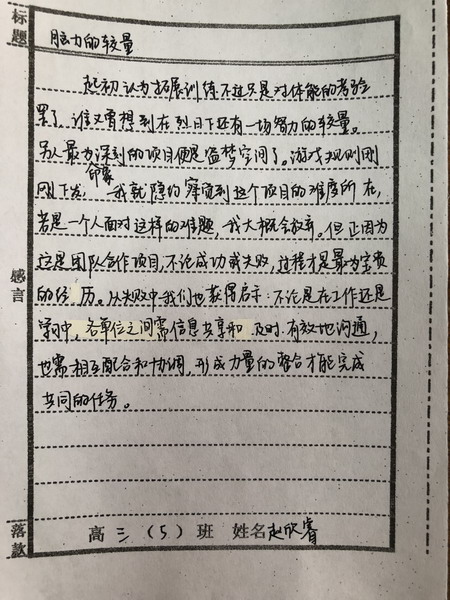 标题
脑力的较量
起初认为拓展训练不过只是对体能的考验
罢了，谁又曾想到在烈日下还有一场智力的较量。
另人最为深刻的项目便是盗梦空间了。游戏规则刚
印象
刚下发，我就隐约察觉到这个项目的难度所在，
若是一个人面对这样的难题，我大概会放弃。但正因为
这是团队合作项目，不论成功或失败，过程才是最为宝贵
的经历。从失败中我们也获得启示：不论是在工作还是
学习中，各单位之间需信息共享和及时有效地沟通，
也需相互配合和协调，形成力量的整合才能完成
共同的任务。
感言
落款
高三（5）班 姓名赵欣睿